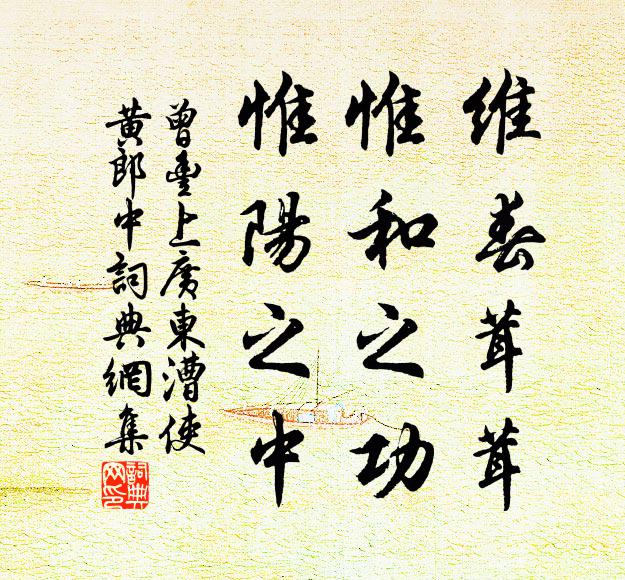 維春茸茸
惟和之功
惟陽之中
曾豐上廣東漕使
黃郎中詞典網集
詞典网印